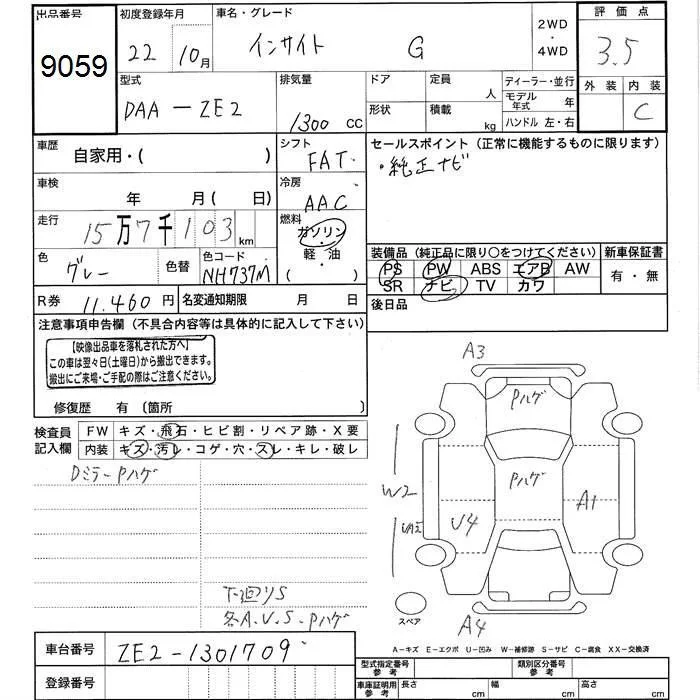 出品番号
9059
初度登録年月
22 10月
車名・グレード
インサイト G
2WD
・
4WD
評価点
3.5
外装 内装
C
型式
DAA-ZE2
排気量
1300 CC
ドア
形状
定員 人
積載 kg
ディーラー・並行
モデル年式 年
ハンドル 左・右
車歴
自家用・( )
シフト
FAT
セールスポイント (正常に機能するものに限ります)
・純正ナビ
車検
年 月( 日)
冷房
AAC
走行
15万7千103km
燃料
ガソリン
・
軽・油
( )
色
グレー
色替
色コード
NH737M
装備品 (純正品に限り〇をつけてください)
PS PW ABS エアB AW
SR ナビ TV カワ
新車保証書
有・無
R券 11.460円
名変通知期限 月 日
後日品
注意事項申告欄 (不具合内容等は具体的に記入して下さい)
【映像出品車を落札された方へ】
この車は翌々日(土曜日)から搬出できます。
搬出にご来場・ご手配の際はご注意ください。
修復歴 有 〔箇所 〕
検査員
記入欄
FW キズ・飛石・ヒビ割・リペア跡・X要
内装 キズ・汚レ・コゲ・穴・スレ・キレ・破レ
Dミラー Pハゲ
下廻りS
各A.U.S.Pハゲ
A3
Pハゲ
Pハゲ
W2
U4
A1
A4
スペア
A-キズ E-エクボ U-凹み W-補修跡 S-サビ C-腐食 XX-交換済
車台番号
ZE2-1301709
登録番号
型式指定番号
参考
類別区分番号
参考
車庫証明用
参考
長さ cm
幅 cm
高さ cm